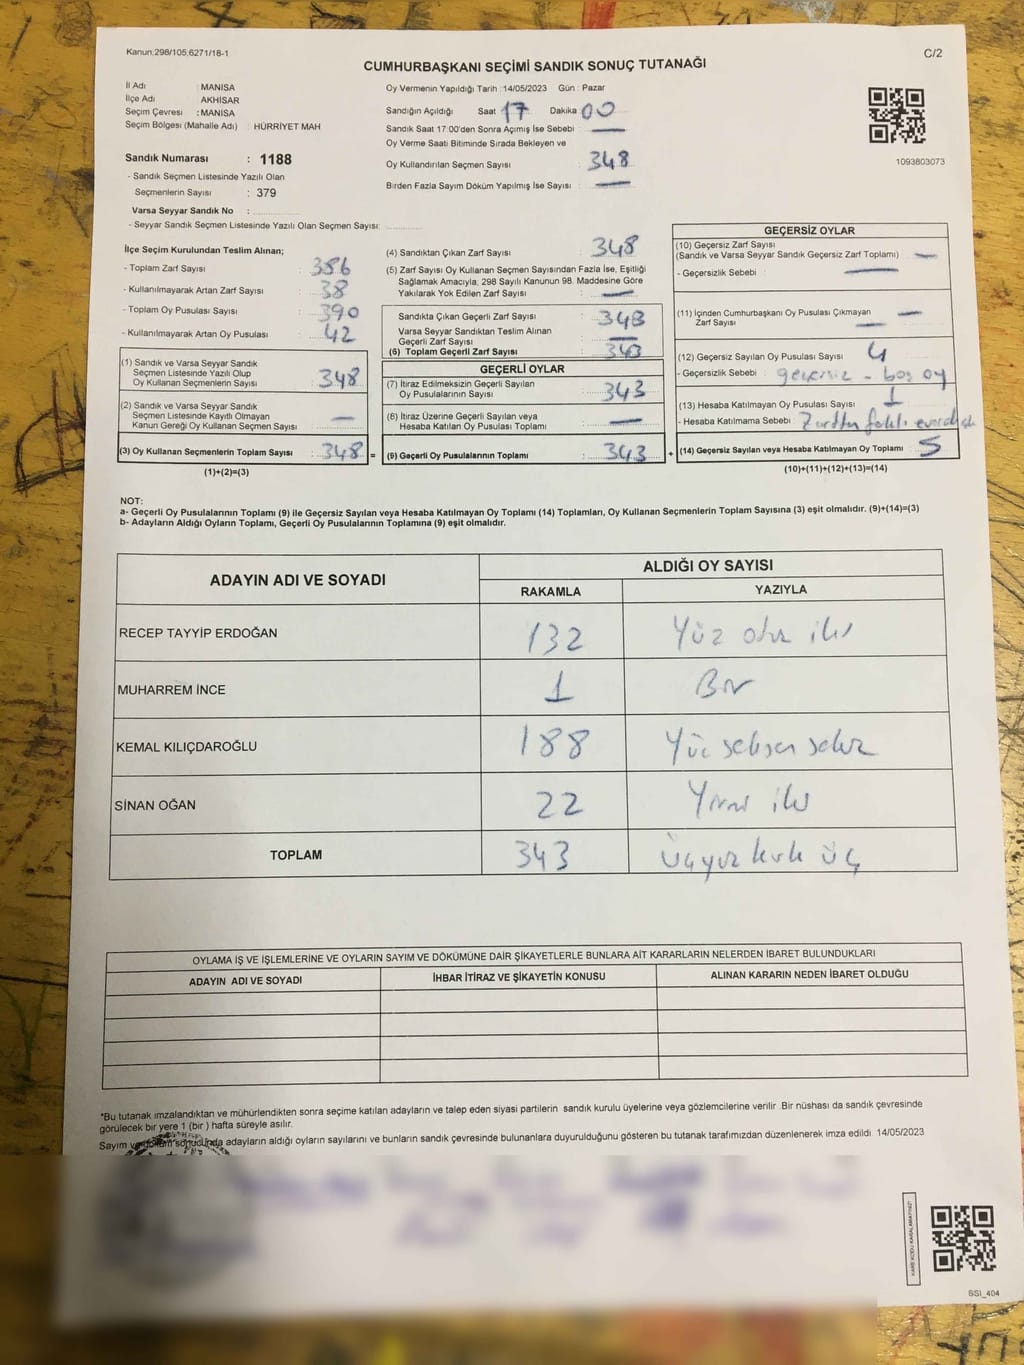 Kanun:298/105,6271/18-1
C/2
CUMHURBAŞKANI SEÇİMİ SANDIK SONUÇ TUTANAĞI
İl Adı : MANİSA
İlçe Adı AKHİSAR
Seçim Çevresi : MANİSA
Seçim Bölgesi (Mahalle Adı) : HÜRRİYET MAH
Sandık Numarası : 1188
- Sandık Seçmen Listesinde Yazılı Olan
Seçmenlerin Sayısı : 379
Varsa Seyyar Sandık No :
- Seyyar Sandık Seçmen Listesinde Yazılı Olan Seçmen Sayısı:
Oy Vermenin Yapıldığı Tarih : 14/05/2023 Gün : Pazar
Sandığın Açıldığı Saat 17 Dakika 00
Sandık Saat 17:00'den Sonra Açımış İse Sebebi : —
Oy Verme Saati Bitiminde Sırada Bekleyen ve
Oy Kullandırılan Seçmen Sayısı : 348
Birden Fazla Sayım Döküm Yapılmış İse Sayısı : —
1093803073
İlçe Seçim Kurulundan Teslim Alınan;
- Toplam Zarf Sayısı : 386
- Kullanılmayarak Artan Zarf Sayısı : 38
- Toplam Oy Pusulası Sayısı : 390
- Kullanılmayarak Artan Oy Pusulası : 42
(1) Sandık ve Varsa Seyyar Sandık
Seçmen Listesinde Yazılı Olup
Oy Kullanan Seçmenlerin Sayısı : 348
(2) Sandık ve Varsa Seyyar Sandık
Seçmen Listesinde Kayıtlı Olmayan
Kanun Gereği Oy Kullanan Seçmen Sayısı : —
(3) Oy Kullanan Seçmenlerin Toplam Sayısı : 348 =
(1)+(2)=(3)
(4) Sandıktan Çıkan Zarf Sayısı : 348
(5) Zarf Sayısı Oy Kullanan Seçmen Sayısından Fazla İse, Eşitliği
Sağlamak Amacıyla, 298 Sayılı Kanunun 98. Maddesine Göre
Yakılarak Yok Edilen Zarf Sayısı : —
Sandıkta Çıkan Geçerli Zarf Sayısı : 348
Varsa Seyyar Sandıktan Teslim Alınan
Geçerli Zarf Sayısı : —
(6) Toplam Geçerli Zarf Sayısı : 343
GEÇERLİ OYLAR
(7) İtiraz Edilmeksizin Geçerli Sayılan
Oy Pusulalarının Sayısı : 343
(8) İtiraz Üzerine Geçerli Sayılan veya
Hesaba Katılan Oy Pusulası Toplamı : —
(9) Geçerli Oy Pusulalarının Toplamı : 343 +
GEÇERSİZ OYLAR
(10) Geçersiz Zarf Sayısı
(Sandık ve Varsa Seyyar Sandık Geçersiz Zarf Toplamı) : —
- Geçersizlik Sebebi : —
(11) İçinden Cumhurbaşkanı Oy Pusulası Çıkmayan
Zarf Sayısı : —
(12) Geçersiz Sayılan Oy Pusulası Sayısı : 4
- Geçersizlik Sebebi : geçersiz - boş oy
(13) Hesaba Katılmayan Oy Pusulası Sayısı : 1
- Hesaba Katılmama Sebebi : Zarftan
(14) Geçersiz Sayılan veya Hesaba Katılmayan Oy Toplamı : 5
(10)+(11)+(12)+(13)=(14)
NOT:
a- Geçerli Oy Pusulalarının Toplamı (9) ile Geçersiz Sayılan veya Hesaba Katılmayan Oy Toplamı (14) Toplamları, Oy Kullanan Seçmenlerin Toplam Sayısına (3) eşit olmalıdır. (9)+(14)=(3)
b- Adayların Aldığı Oyların Toplamı, Geçerli Oy Pusulalarının Toplamına (9) eşit olmalıdır.
ADAYIN ADI VE SOYADI ALDIĞI OY SAYISI
RAKAMLA YAZIYLA
RECEP TAYYİP ERDOĞAN 132 Yüz otuz iki
MUHARREM İNCE 1 Bir
KEMAL KILIÇDAROĞLU 188 Yüz seksen sekiz
SİNAN OĞAN 22 Yirmi iki
TOPLAM 343 Üçyüz kırk üç
OYLAMA İŞ VE İŞLEMLERİNE VE OYLARIN SAYIM VE DÖKÜMÜNE DAİR ŞİKAYETLERLE BUNLARA AİT KARARLARIN NELERDEN İBARET BULUNDUKLARI
ADAYIN ADI VE SOYADI İHBAR İTİRAZ VE ŞİKAYETİN KONUSU ALINAN KARARIN NEDEN İBARET OLDUĞU
*Bu tutanak imzalandıktan ve mühürlendikten sonra seçime katılan adayların ve talep eden siyasi partilerin sandık kurulu üyelerine veya gözlemcilerine verilir. Bir nüshası da sandık çevresinde
görülecek bir yere 1 (bir) hafta süreyle asılır.
Sayım ve döküm sonucunda adayların aldığı oyların sayılarını ve bunların sandık çevresinde bulunanlara duyurulduğunu gösteren bu tutanak tarafımızdan düzenlenerek imza edildi. 14/05/2023
KARE KODU KARALAMAYINIZ!
SSI_404